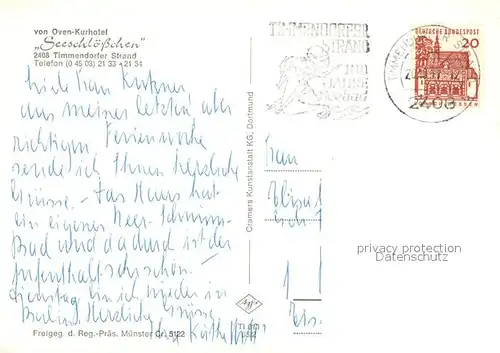 von Oven-Kurhotel
„Seeschlößchen"
2408 Timmendorfer Strand
Telefon (0 45 03) 21 33 + 21 34
Liebe Frau
aus meiner letzten aber
richtigen Ferienwoche
sende ich Ihnen herzliche
Grüsse. Das Haus hat
ein eigenes Meer-Schwimm-
Bad und dadurch ist der
Aufenthalt sehr schön.
Dienstag bin ich wieder in
Berlin. Herzliche Grüsse
Ihre Käthe
Freigeg. d. Reg.-Präs. Münster Cr. 5122
Cramers Kunstanstalt KG, Dortmund
Agfa
TIMMENDORFER
STRAND
JAHRE
2408
DEUTSCHE BUNDESPOST
20
Frau
privacy protection
Datenschutz